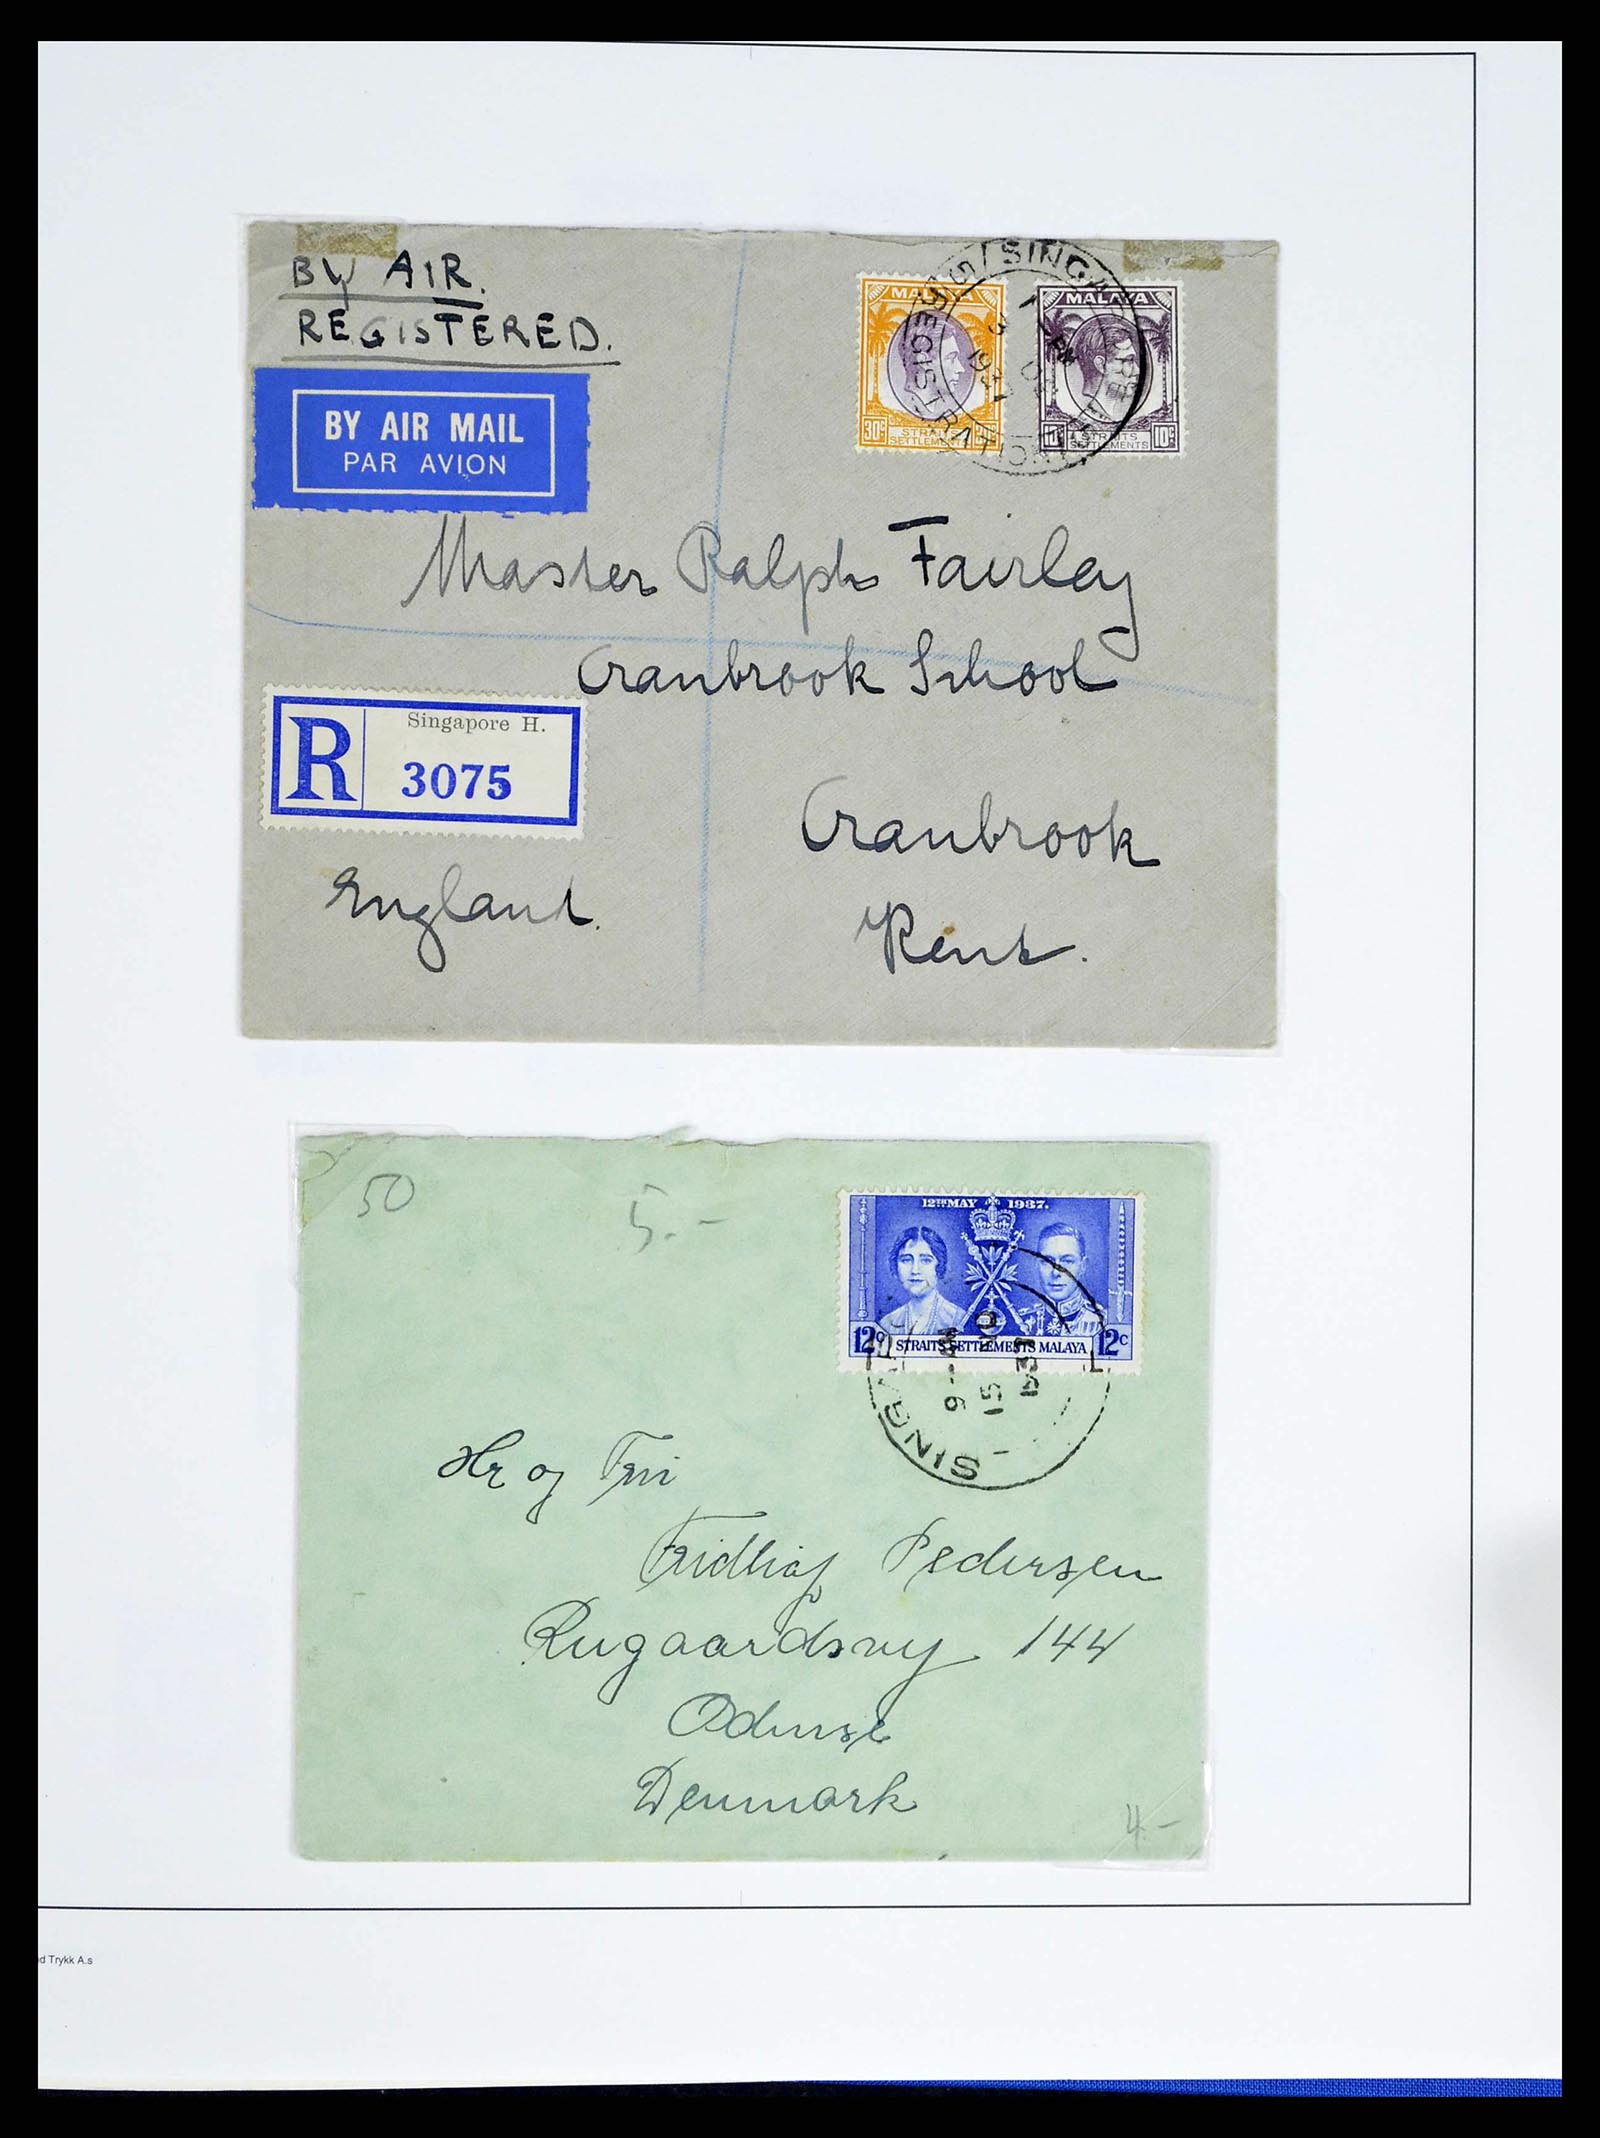 BY AIR.
REGISTERED.
BY AIR MAIL
PAR AVION
MALAYA
30C
STRAITS
SETTLEMENTS
MALAYA
STRAITS
SETTLEMENTS
10C
SINGAPORE
REGISTRATION
1937
Master Ralph Fairley
Cranbrook School
R
Singapore H.
3075
Cranbrook
England.
Kent.
50
5.-
12TH MAY 1937.
12C STRAITS SETTLEMENTS MALAYA 12C
9-AM
15
Hr og Fru
Fridthiof Pedersen
Rugaardsvej 144
Odense
Denmark
4.-
d Trykk A.s